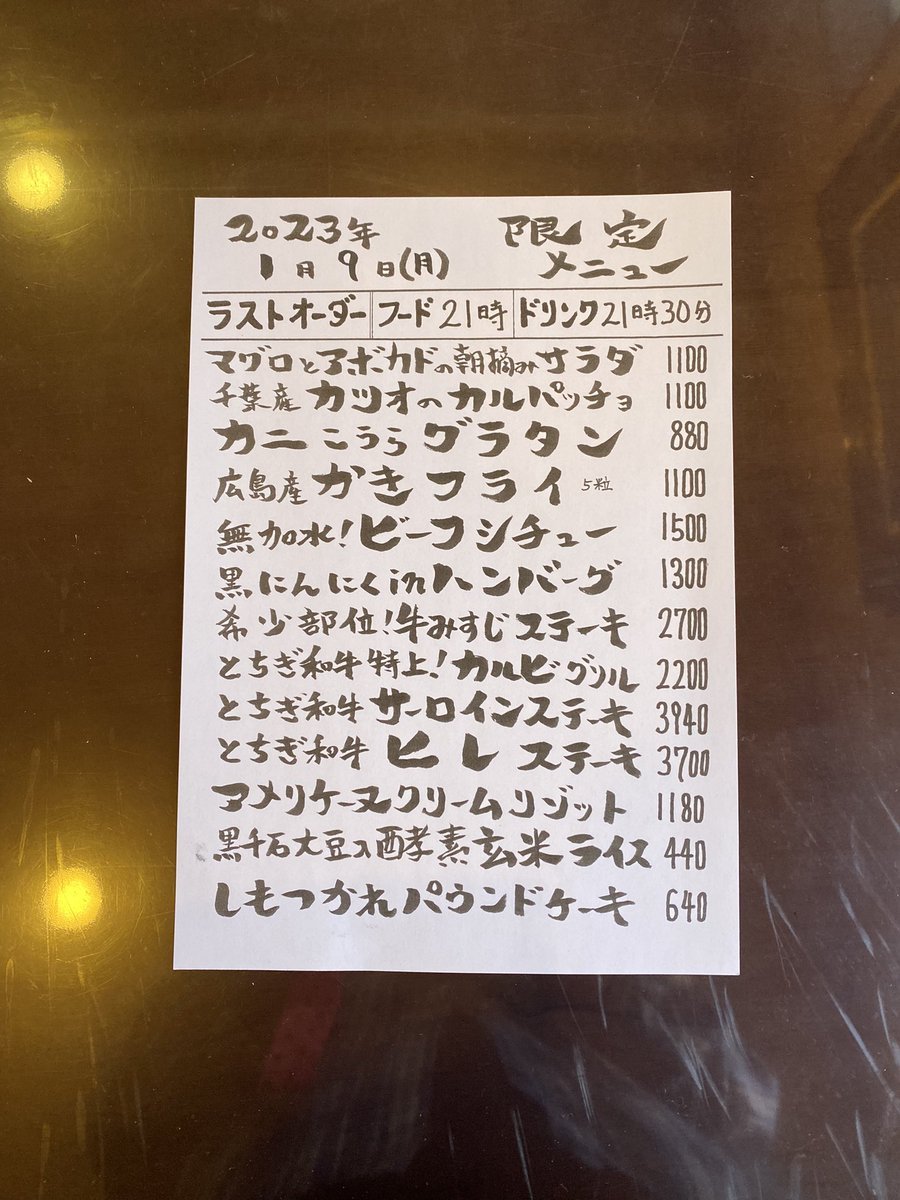 2023年 限定
1月9日(月) メニュー
ラストオーダー フード21時 ドリンク21時30分
マグロとアボカドの朝摘みサラダ 1100
千葉産カツオのカルパッチョ 1100
カニこうらグラタン 880
広島産かきフライ 5粒 1100
無加水!ビーフシチュー 1500
黒にんにくinハンバーグ 1300
希少部位!牛みすじステーキ 2700
とちぎ和牛特上!カルビグリル 2200
とちぎ和牛サーロインステーキ 3940
とちぎ和牛ヒレステーキ 3700
アメリケーヌクリームリゾット 1180
黒千石大豆入酵素玄米ライス 440
しもつかれパウンドケーキ 640